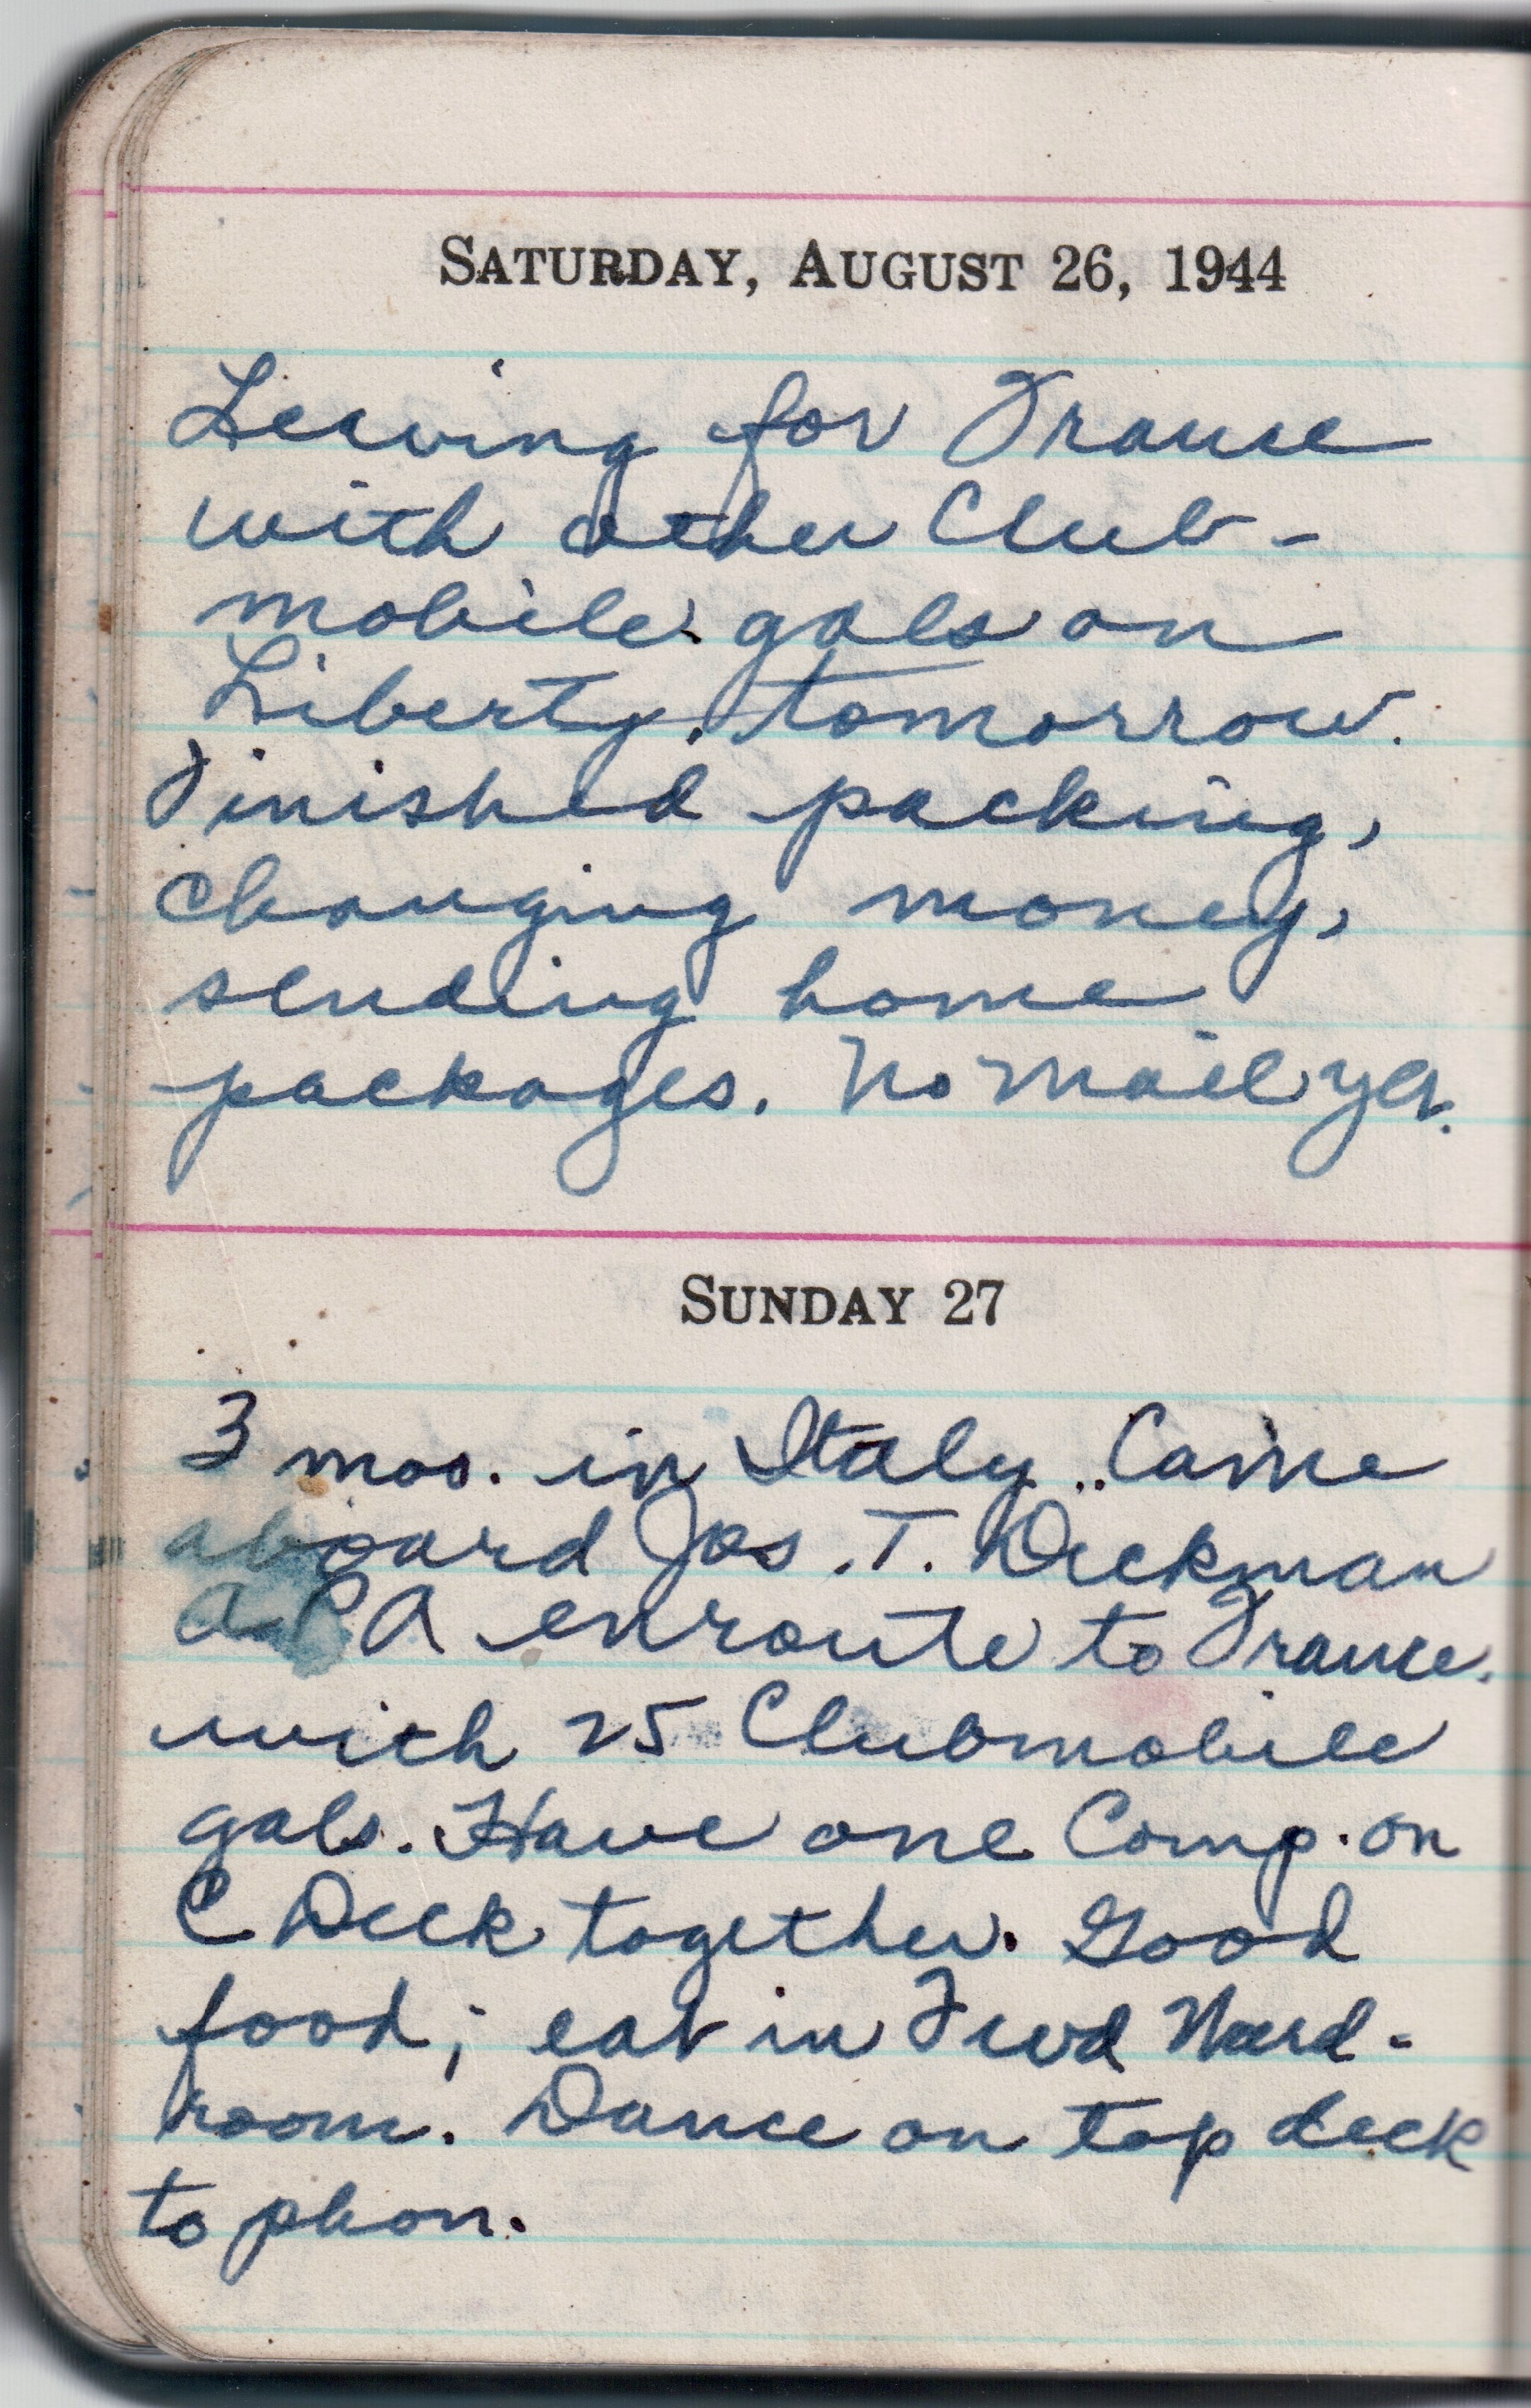 SATURDAY, AUGUST 26, 1944
Leaving for France
with other Club-
mobile gals on
Liberty tomorrow.
Finished packing,
changing money,
sending home
packages. No mail yet.
SUNDAY 27
3 mos. in Italy. Came
aboard Jos. T. Dickman
APA enroute to France.
with 25 Clubmobile
gals. Have one Comp. on
C Deck together. Good
food; eat in Fwd Ward-
room. Dance on top deck
to phon.